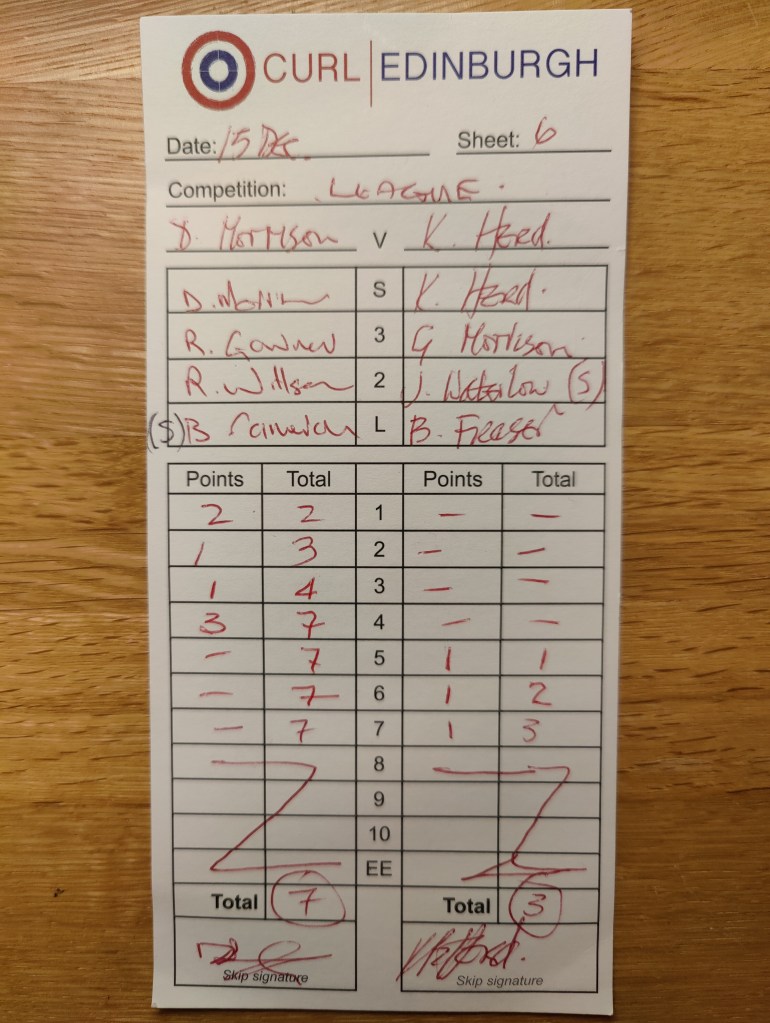 CURL | EDINBURGH
Date: 15 DEC. Sheet: 6
Competition: LEAGUE.
D. Morrison V K. Herd.
D. Morrison S K. Herd.
R. 3 G Morrison
R. Wilson 2 J. Waterlow (S)
(S) B L B. Fraser
Points Total Points Total
2 2 1 – –
1 3 2 – –
1 4 3 – –
3 7 4 – –
– 7 5 1 1
– 7 6 1 2
– 7 7 1 3
8
9
10
EE
Total 7 Total 3
Skip signature Skip signature